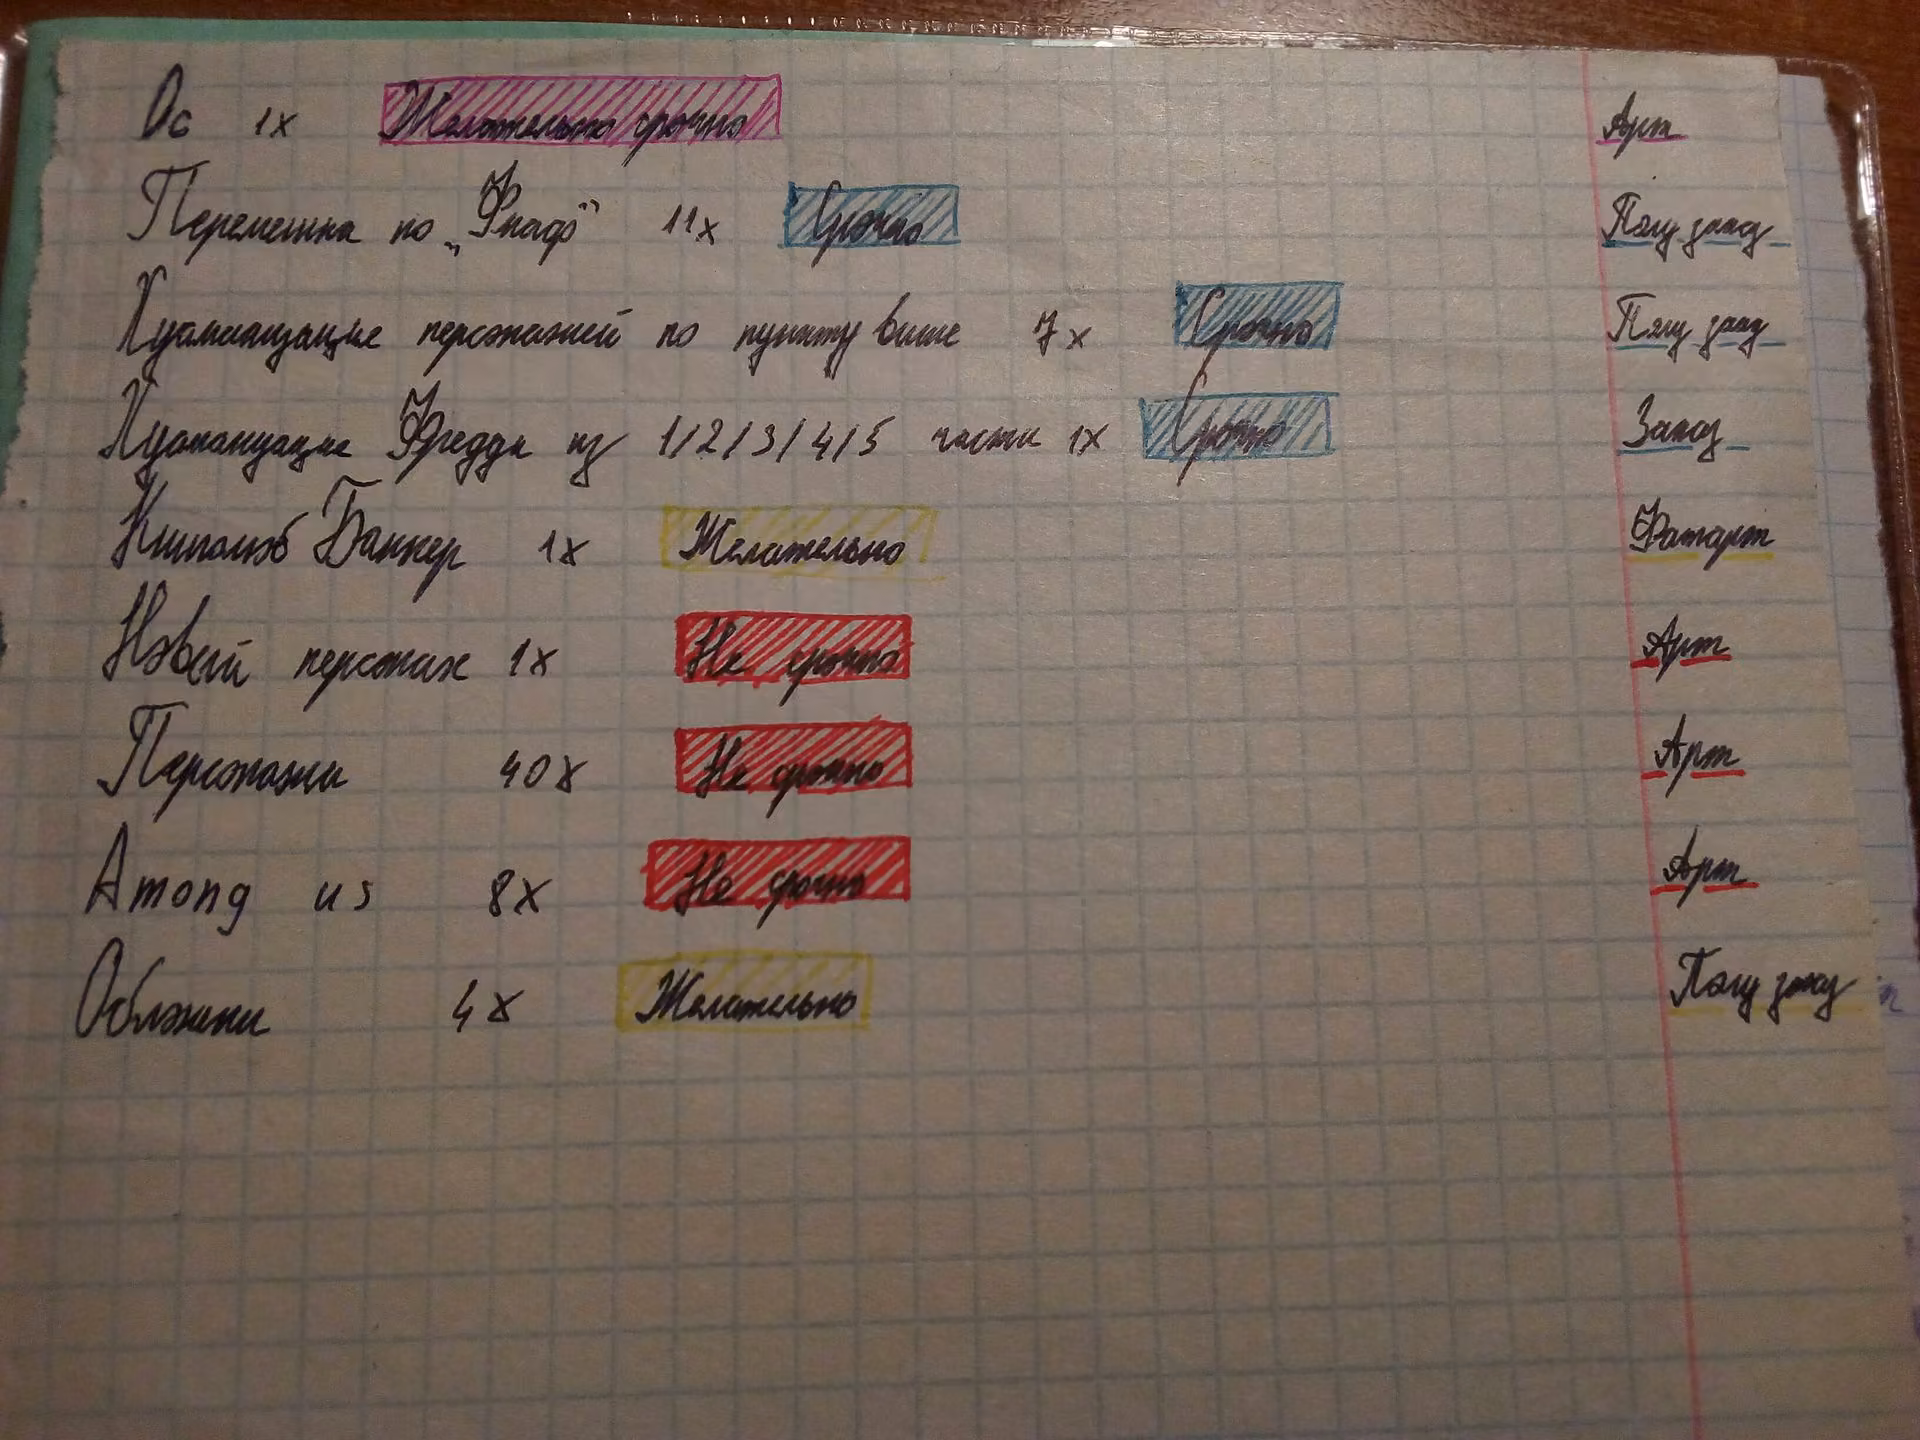 Ос 1х Желательно срочно Арт
Перемешка по „Фнаф" 11х Срочно Полу заказ
Хуманизация персонажей по пункту выше 7х Срочно Полу заказ
Хуманизация Фредди из 1/2/3/4/5 части 1х Срочно Заказ
Банкер 1х Желательно Фанарт
Новый персонаж 1х Не срочно Арт
Персонажи 40х Не срочно Арт
Among us 8х Не срочно Арт
Обложки 4х Желательно Полу заказ